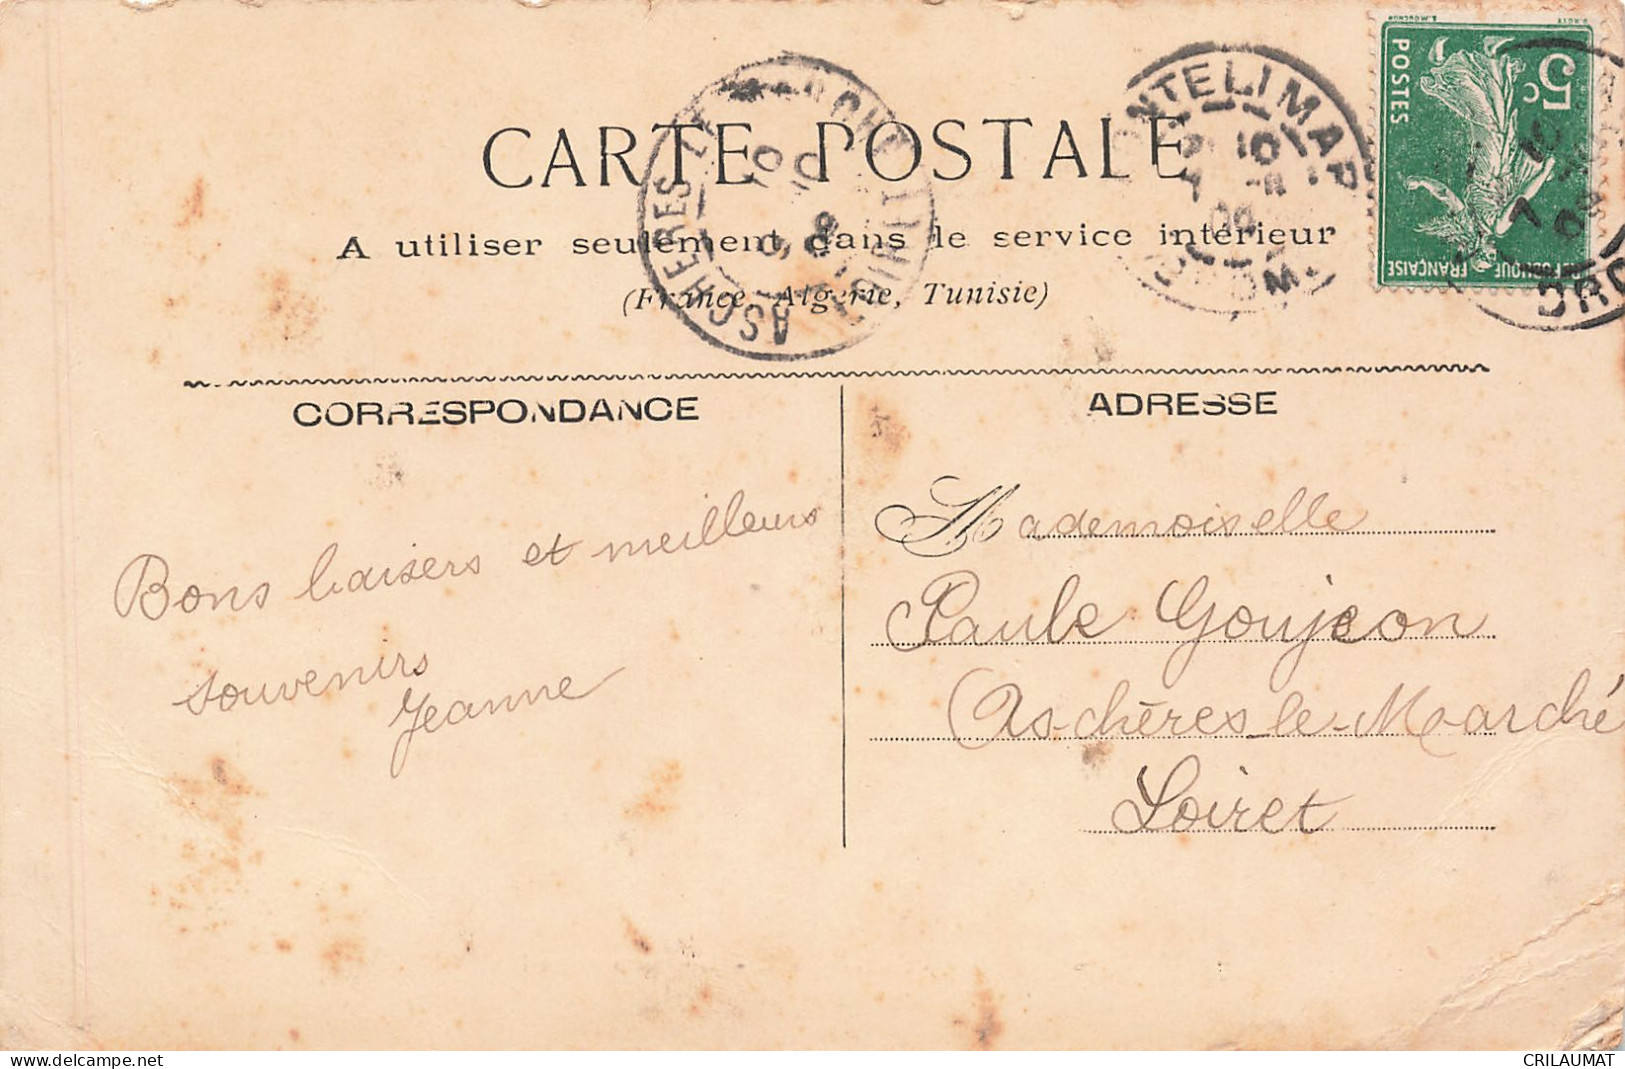 CARTE POSTALE
A utiliser seulement dans le service intérieur
(France, Algérie, Tunisie)
ASCHERES LE MARCHE
LOIRET
MONTELIMAR
DROME
5c
POSTES
RÉPUBLIQUE FRANÇAISE
CORRESPONDANCE
ADRESSE
Bons baisers et meilleurs
souvenirs
Jeanne
Mademoiselle
Paule Goujeon
Aschères-le-Marché
Loiret
www.delcampe.net
CRILAUMAT